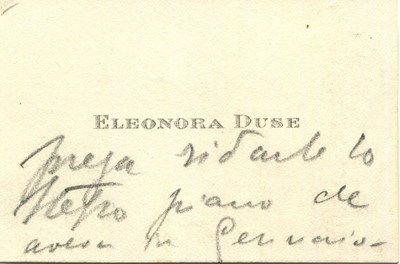 ELEONORA DUSE
prega ridarle lo
stesso piano che
aveva in Gennaio-